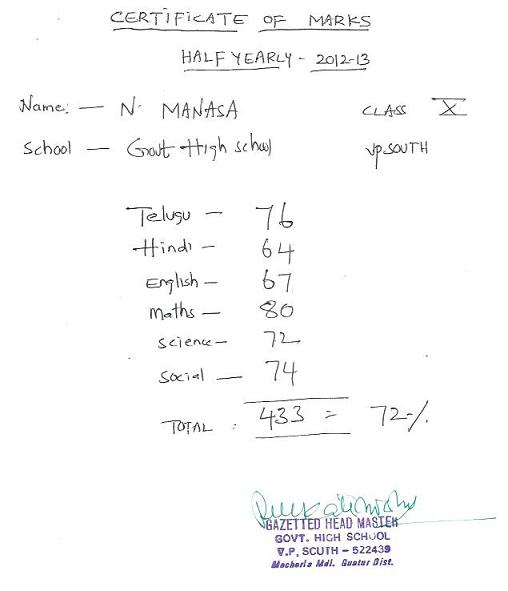 CERTIFICATE OF MARKS
HALF YEARLY - 2012-13
Name: — N. MANASA CLASS X
School — Govt High school VP SOUTH
Telugu — 76
Hindi — 64
English — 67
Maths — 80
Science — 72
Social — 74
TOTAL : 433 = 72%
GAZETTED HEAD MASTER
GOVT. HIGH SCHOOL
V.P. SOUTH - 522439
Macherla Mdl. Guntur Dist.